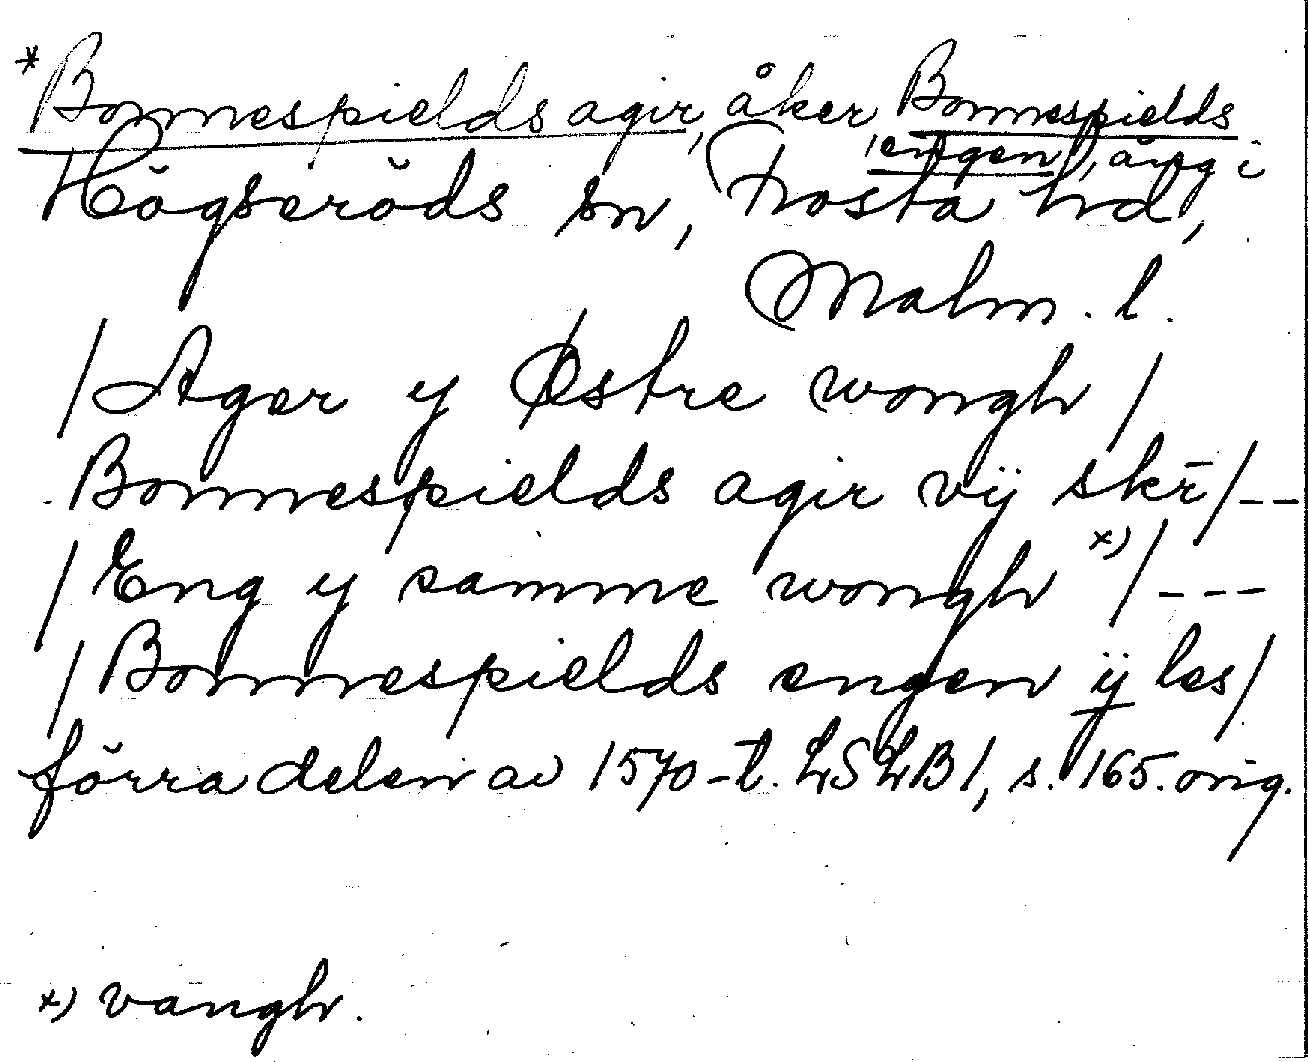 *Bonnespields agir, åker, Bonnespields
engen, äng i
Högseröds sn, Frosta hd,
Malm. l.
/Ager y Østre wongh/
Bonnespields agir vij skr̄/--
/Eng y samme wongh x)/---
/Bonnespields engen ÿ les/
förra delen av 1570-t. LSLB1, s. 165. orig.
x) vangh.